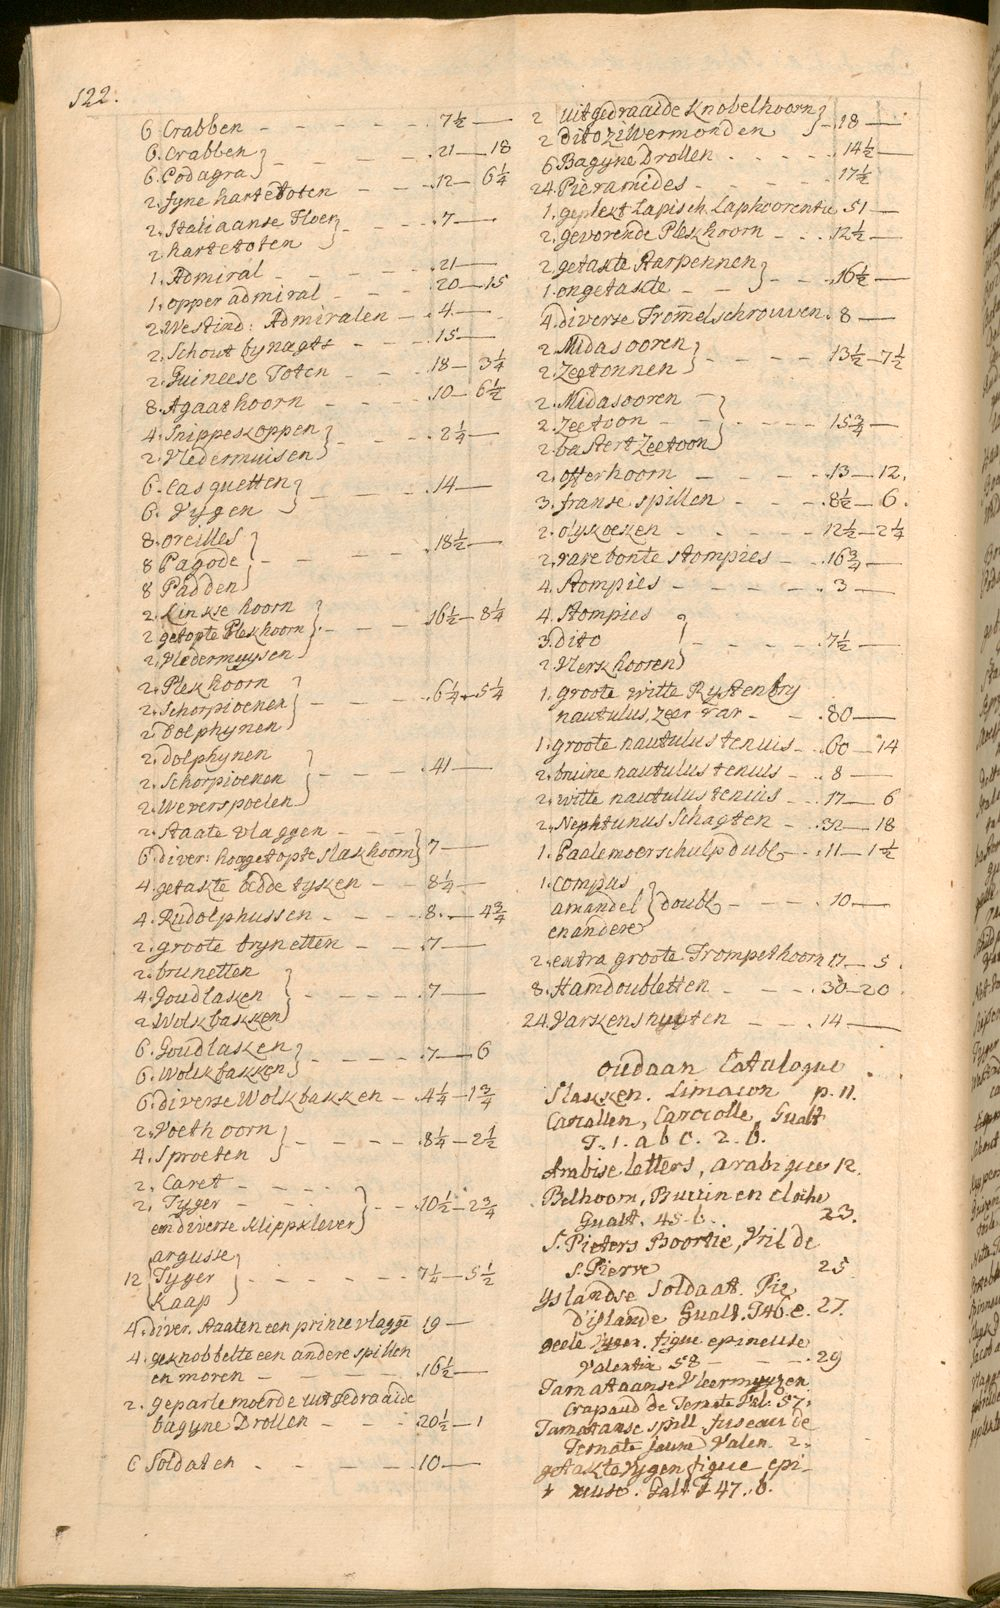 122.
6 Crabben - - - - - . 7½ —
6. Crabben } - - - - . 21 — 18
6. Podagra
2. fyne hartetoten - - - . 12 - 6¼
2. Italiaanse Floer } - - - . 7 —
2 hartetoten
1. Admiral - - - - - . 21 —
1. opper admiral - - - . 20 — 15
2. Westind: Admiralen - . 4. —
2. Schout bynagts - - - . 15 —
2. Guineese Toten - - - . 18 - 3¼
8. Agaathoorn - - - . 10 - 6½
4. Snippeskoppen } - - - . 2¼ —
2. Vledermuisen
6. Casquetten } - - - . 14 —
6. Vygen
8. oreilles
8 Pagode } - - - - . 18½ —
8 Padden
2. Linkse hoorn
2 getopte Plekhoorn } - - - 16½ - 8¼
2. Vledermuysen
2. Plekhoorn
2. Schorpioenen } - - - . 6¼ - 5¼
2. Dolphynen
2. Dolphynen
2. Schorpioenen } - - - . 41 —
2. Weverspoelen
2. Staate Vlaggen - - - } 7 —
6. diver: hooggetopte Slakhoorn
4. getakte bedde tyken - - 8¼ —
4. Rudolphussen - - - . 8. — 4¾
2. groote brynetten - - . 7 —
2. brunetten
4. Goudlaken } - - - - . 7 —
2. Wolkbakken
6. Goudlaken } - - - - . 7 — 6
6. Wolkbakken
6. diverse Wolkbakken - . 4¼ - 1¾
2. Voethoorn } - - - - . 8¼ - 2½
4. Sproeten
2. Caret - - - -
2. Tyger - - - } - - . 10½ - 2¾
en diverse Klippklever
argusse
12 Tyger } - - - - - 7¼ - 5½
Kaap
4. diver. Staaten een prince vlagge 19 —
4. geknobbelte een andere spillen
en moren - - - - - . 16½ —
2. geparlemoerde uitgedraaide
bagyne Drollen - - - 20½ - 1
6 Soldaten - - - - - 10 —
2 uitgedraaide Knobelhoorn } - . 18 —
2 dito zilvermonden
6 Bagyne Drollen - - - . 14½ —
24. Pieramides - - - - . 17½ —
1. geplekt Lapisch. Laphoorentie 51 —
2. gevorende Plekhoorn - . . 12½ —
2 getakte Starpennen } - - . 16½ —
1. ongetakte - -
4. diverse Trom̅elschrouven. 8 —
2. Midasooren } - - - - 13½ - 7½
2. Zeetonnen
2. Midasooren -
2. Zeetoon - - } - - - 15¾ —
2 bastert Zeetoon
2. otterhoorn - - - - . 13 — 12.
3. franse spillen - - - . 8½ - 6.
2. olykoeken - - - - 12½ - 2¼
2. rare bonte Stompies - . 16¾ —
4. Stompies - - - - - . 3 —
4. Stompies
3. dito } - - - - . 7½ —
2. Vlerkhooren
1. groote witte Rystenbry
nautulus, zeer rar - - . 80 —
1. groote nautulus tenuis - . 60 - 14
2. bruine nautulus tenuis - . 8 —
2. witte nautulus tenuis - . . 17 — 6
2. Nephtunus Schagten - . 32 — 18
1. Paalemoerschulp dubl. - . 11 — 1½
1. Compas
amandel } doubl - - - . 10 —
en andere
2. extra groote Trompethoorn 17 — 5.
8. Hamdoubletten - - - . 30 - 20.
24. Varkenshuyten - - - . 14 —
oudaan Catalogue
Slakken. Limacon p. 11.
Caracollen, Carocolle, Gualt
T. 1. a b c. 2. b.
Arabise letters, arabique 12.
Belhoorn, Buccin en cloche
Gualt. 45. b. 23.
S. Pieters Boortie, Vril de
S. Pierre 25
Yslandse Soldaat. Pie
D'islande Gualt. T 46. e. 27.
Geele Vygen. figue epineuse
Valentin 58 - - - . 29
Tarnataanse Vleermuyzen
Crapaud de Ternate Val. 57.
Tarnataanse spill. fuseau de
Ternate jaune Valen. 2.
getakte Vygen figue epi-
neuse. Galt. T 47. b.